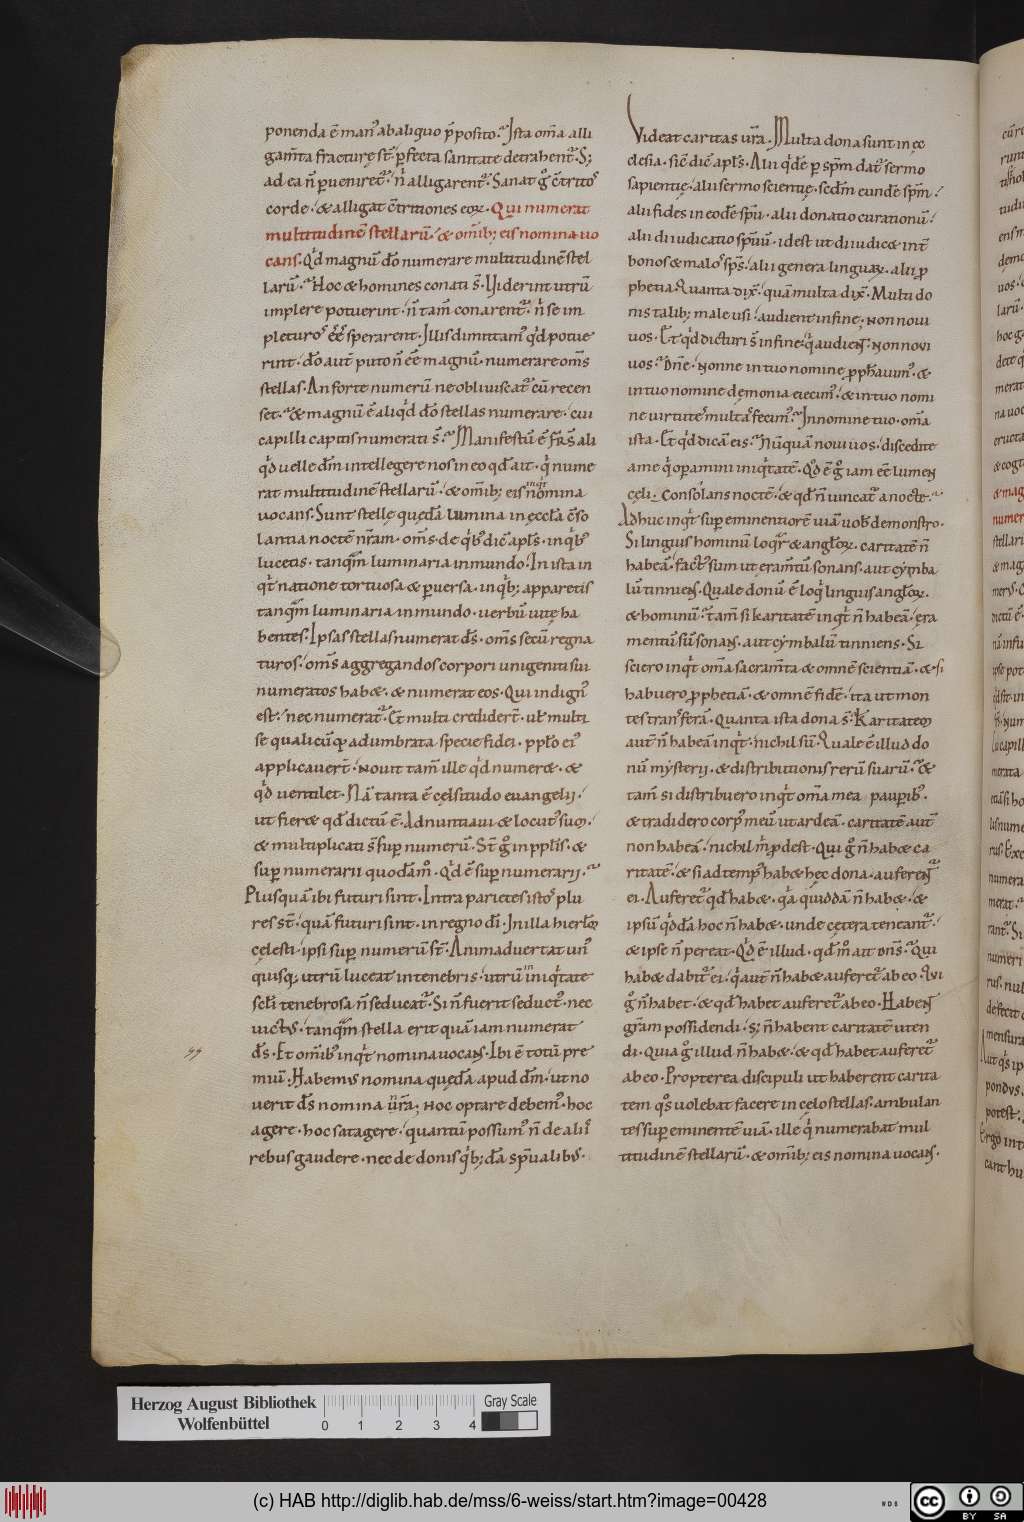 ponenda ē man᷒ ab aliquo p̄posito. Ista om̄a alli
gam̄ta fracturę st̄. p̄fecta sanitate detrahent̄. S;
ad ea n̄ pueniret̄. n̄ alligarent̄. Sanat g̊ c̄tritos
corde. & alligat c̄tritiones eoꝝ. Qui numerat
multitudinē stellarū. & om̄ib; eis nomina uo
cans. Qd̄ magnū dō numerare multitudinē stel
larū. Hoc & homines conati s̄. Uiderint utrū
implere potuerint. n̄ tam̄ conarent̄. n̄ se im
pleturos ēē sperarent. Illis dimittam᷒ qd̄ potue
rint. dō aut̄ puto n̄ ēē magnū. numerare om̄s
stellas. An forte numerū ne obliuiscat̄ cū recen
set. & magnū ē aliqd̄ dō stellas numerare. cui
capilli capitis numerati s̄. Manifestū ē fr̄s ali
qd̄ uelle dm̄ intellegere nos in eo qd̄ ait. q̄ nume
rat multitudinē stellarū. & om̄ib; eis nomina
uocans. Sunt stellę quędā lumina in ęccl̄a c̄so
lantia noctē nr̄am. om̄s de qb᷒ dic̄ apl̄s. in qb᷒
lucetis. tanquā luminaria in mundo. In ista in
qt̄ natione tortuosa & puersa. in qb; apparetis
tanquā luminaria in mundo. uerbū uitę ha
bentes. Ipsas stellas numerat ds̄. om̄s secū regna
turos. om̄s aggregandos corpori unigeniti sui
numeratos hab&. & numerat eos. Qui indign᷒
est. nec numerat̄. Et multi credidert̄. uł multi
se qualicūq; adumbrata specie fidei. pplo ei᷒
applicauert̄. Nouit tam̄ ille qd̄ numer&. &
qd̄ uentilet. Nā tanta ē celsitudo euangelii.
ut fier& qd̄ dictū ē. Adnuntiaui & locut᷒ sum.
& multiplicati s̄ sup numerū. St̄ g̊ in pplis. &
sup numerarii quodam̊. Qd̄ ē sup numerarii.
Plus quā ibi futuri sunt. Intra parietes istos plu
res st̄. quā futuri sint. in regno dī. In illa hierlm̄
cęlesti. ipsi sup numerū st̄. Animaduertat un᷒
quisq; utrū luceat in tenebris. utrū in iniq̄tate
scl̄i tenebrosa n̄ seducat̄. Si n̄ fuerit seduct᷒. nec
uict᷒. tanquā stella erit quā iam numerat
ds̄. Et omīb᷒ inqt̄ nomina uocans. Ibi ē totū pre
miū. Habemus nomina quędā apud dm̄. ut no
uerit ds̄ nomina nr̄a; Hoc optare debem᷒. hoc
agere. hoc satagere. quantū possum᷒ n̄ de aliis
rebus gaudere. nec de donis qb; dā spūalib᷒.
Videat caritas ur̄a. Multa dona sunt in ęc
clesia. sic̄ dic̄ apl̄s. Alii qd̄ē p spm̄ dat̄ sermo
sapientię. alii sermo scientię. scdm̄ eundē spm̄.
alii fides in eodē spū. alii donatio curationū.
alii diiudicatio spūū. idest ut diiudic& int̄
bonos & malos sps̄. alii genera linguaꝝ. alii p
phetia. Quanta dix̄. quā multa dix̄. Multi do
nis talib; male usi. audient in fine. Non noui
uos. Et qd̄ dicturi s̄ in fine q̄ audiens. Non noui
uos. Dn̄e. Nonne in tuo nomine pphauim᷒. &
in tuo nomine dęmonia eiecim᷒. & in tuo nomi
ne uirtutes multas fecim᷒. In nomine tuo. om̄a
ista. Et qd̄ dicā eis. Nūquā noui uos. discedite
a me q̄ opamini iniq̄tatē. Qd̄ ē g̊ iam ēē lumen
cęli. consolans noctē. & qd̄ n̄ uincat̄ a nocte.
Adhuc inqt̄ supeminentiorē uiā uob̄ demonstro.
Si linguis hominū loquar & angloꝝ. caritatē n̄
habeā. fact᷒ sum ut eramtū sonans. aut cymba
lū tinniens. Quale donū ē loq̄ linguis angloꝝ.
& hominū. tam̄ si karitatē inqt̄ n̄ habeā. era
mentū sū sonans. aut cymbalū tinniens. Si
sciero inqt̄ om̄a sacram̄ta & omnē scientiā. & si
habuero pphetiā. & omnē fidē. ita ut mon
tes transferā. Quanta ista dona s̄. Karitatem
aut̄ n̄ habeā inqt̄. nichil sū. Quale ē illud do
nū mysterii. & distributionis rerū suarū. &
tam̄ si distribuero inqt̄ om̄a mea paupib᷒.
& tradidero corp᷒ meū ut ardeā. caritatē aut̄
non habeā. nichil m̄ pdest. Qui g̊ n̄ hab& ca
ritatē. & si ad temp᷒ hab& hęc dona. auferent̄
ei. Auferet̄ qd̄ hab&. qa quiddā n̄ hab&. &
ipsū qddā hoc n̄ hab&. unde cętera teneant̄.
& ipse n̄ pereat. Qd̄ ē illud. qd̄ m̊ ait dn̄s. Qui
hab& dabit̄ ei. q̄ aut̄ n̄ hab& auferet̄ ab eo. Qui
g̊ n̄ habet. & qd̄ habet auferet̄ ab eo. Habent
gr̄am possidendi. s; n̄ habent caritatē uten
di. Quia g̊ illud n̄ hab&. & qd̄ habet auferet̄
ab eo. Propterea discipuli ut haberent carita
tem qs̄ uolebat facere in cęlo stellas. ambulan
tes supeminentē uiā. ille q̄ numerabat mul
titudinē stellarū. & om̄ib; eis nomina uocans.
Herzog August Bibliothek
Wolfenbüttel
0 1 2 3 4
Gray Scale
(c) HAB http://diglib.hab.de/mss/6-weiss/start.htm?image=00428
cc BY SA